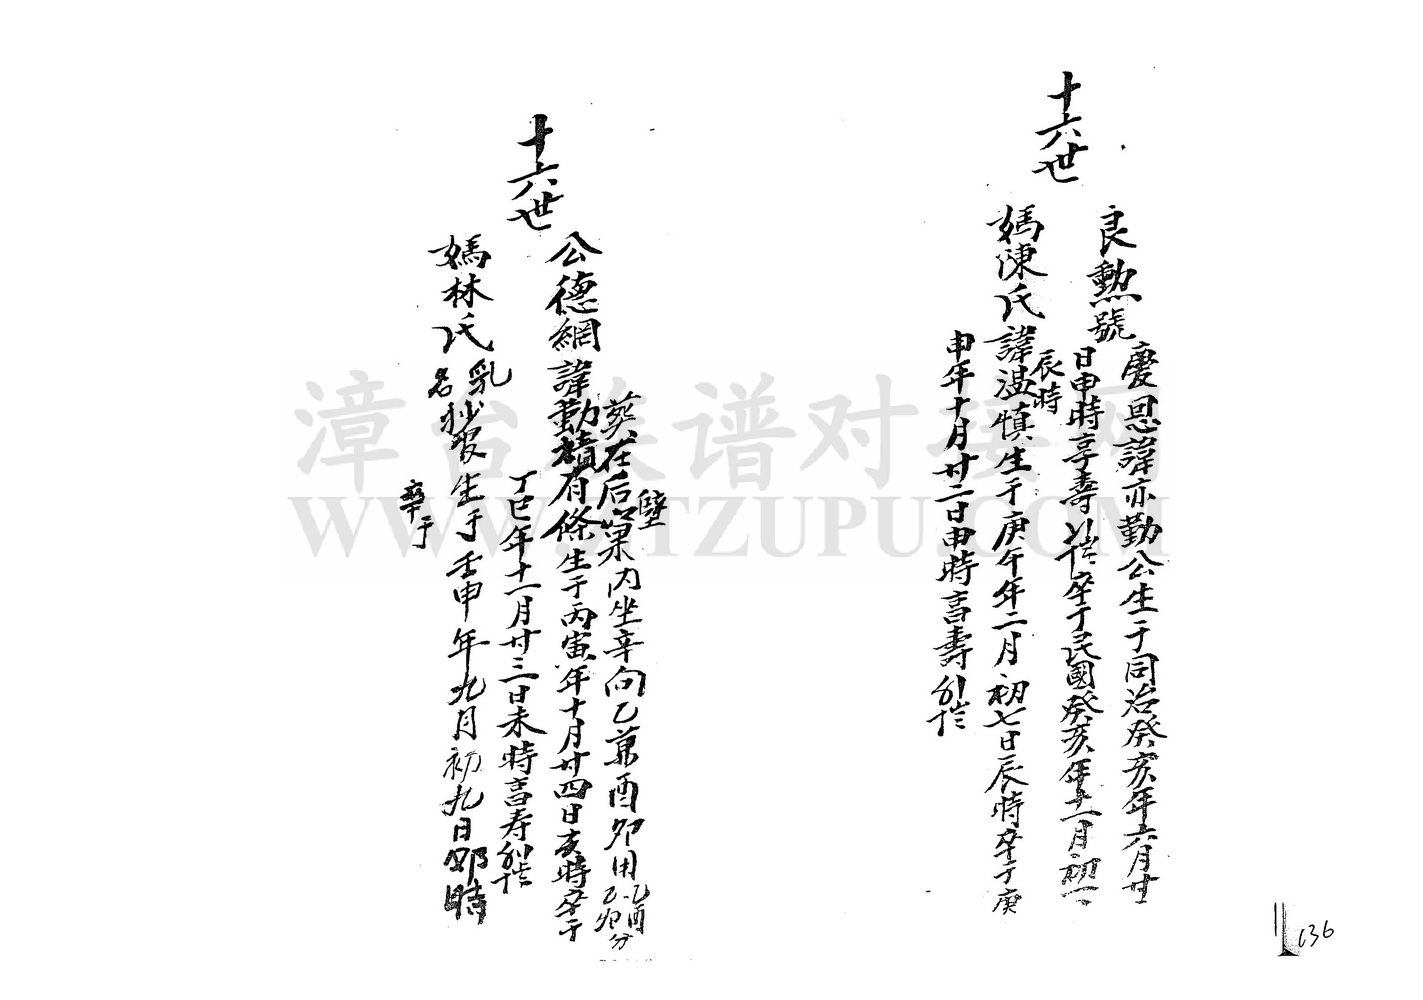 十六世
良勲號
慶恩諱亦勤公生于同治癸亥年六月廿
日申時享壽 卒于民國癸亥年十一月初一
辰時
媽陳氏諱温慎生于庚午年二月初七日辰時卒于庚
申年十月廿二日申時享壽
十六世
公德綱諱勤積有條生于丙寅年十月廿四日亥時卒于
葬在后 内坐辛向乙兼酉卯用乙酉
乙卯分
壁
丁巳年十一月廿三日未時享寿
媽林氏乳名 生于壬申年九月初九日 時
卒于
漳台族谱对接网
WWW.ZTZUPU.COM
136